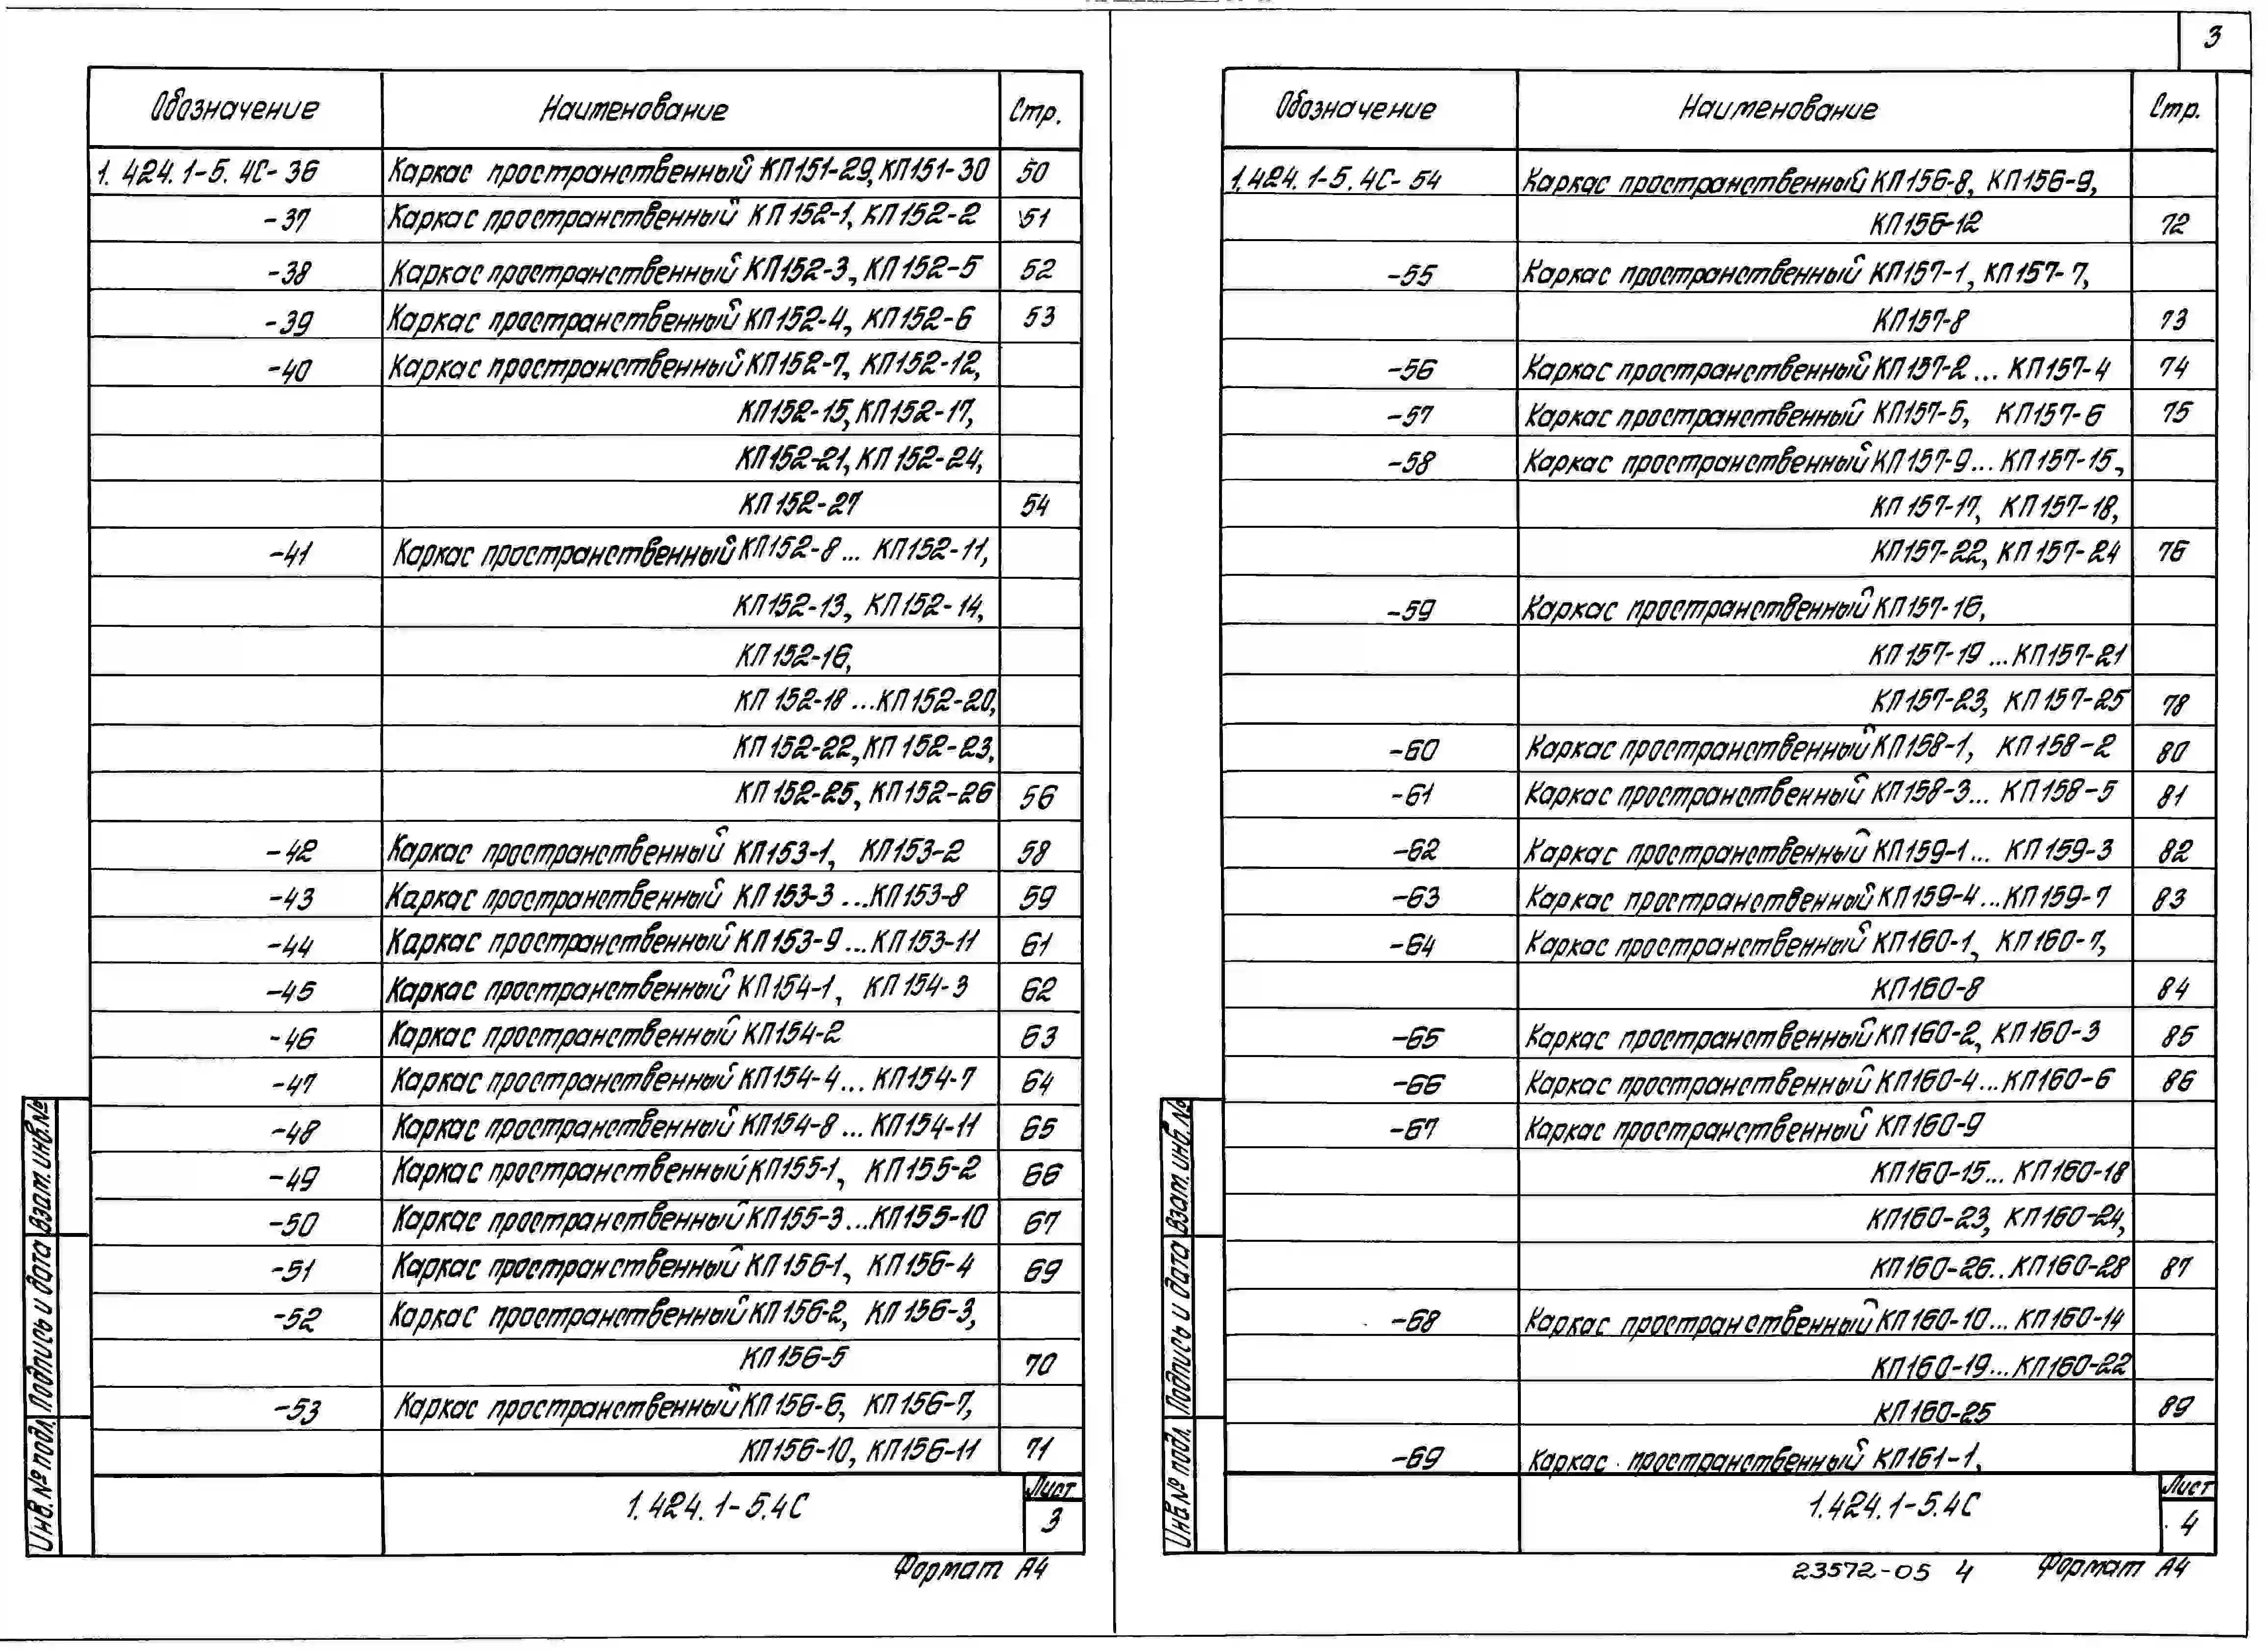 3
Обозначение Наименование Стр.
1.424.1-5.4С-36 Каркас пространственный КП151-29, КП151-30 50
-37 Каркас пространственный КП152-1, КП152-2 51
-38 Каркас пространственный КП152-3, КП152-5 52
-39 Каркас пространственный КП152-4, КП152-6 53
-40 Каркас пространственный КП152-7, КП152-12,
КП152-15, КП152-17,
КП152-21, КП152-24,
КП152-27 54
-41 Каркас пространственный КП152-8... КП152-11,
КП152-13, КП152-14,
КП152-16,
КП152-18 ...КП152-20,
КП152-22, КП152-23,
КП152-25, КП152-26 56
-42 Каркас пространственный КП153-1, КП153-2 58
-43 Каркас пространственный КП153-3 ...КП153-8 59
-44 Каркас пространственный КП153-9 ...КП153-11 61
-45 Каркас пространственный КП154-1, КП154-3 62
-46 Каркас пространственный КП154-2 63
-47 Каркас пространственный КП154-4... КП154-7 64
-48 Каркас пространственный КП154-8 ... КП154-11 65
-49 Каркас пространственный КП155-1, КП155-2 66
-50 Каркас пространственный КП155-3...КП155-10 67
-51 Каркас пространственный КП156-1, КП156-4 69
-52 Каркас пространственный КП156-2, КП156-3,
КП156-5 70
-53 Каркас пространственный КП156-6, КП156-7,
КП156-10, КП156-11 71
1.424.1-5.4С
Лист
3
Формат А4
Взам. инв. №
Подпись и дата
Инв. № подл.
Обозначение Наименование Стр.
1.424.1-5.4С-54 Каркас пространственный КП156-8, КП156-9,
КП156-12 72
-55 Каркас пространственный КП157-1, КП157-7,
КП157-8 73
-56 Каркас пространственный КП157-2... КП157-4 74
-57 Каркас пространственный КП157-5, КП157-6 75
-58 Каркас пространственный КП157-9... КП157-15,
КП157-17, КП157-18,
КП157-22, КП157-24 76
-59 Каркас пространственный КП157-16,
КП157-19 ...КП157-21
КП157-23, КП157-25 78
-60 Каркас пространственный КП158-1, КП158-2 80
-61 Каркас пространственный КП158-3... КП158-5 81
-62 Каркас пространственный КП159-1... КП159-3 82
-63 Каркас пространственный КП159-4...КП159-7 83
-64 Каркас пространственный КП160-1, КП160-7,
КП160-8 84
-65 Каркас пространственный КП160-2, КП160-3 85
-66 Каркас пространственный КП160-4...КП160-6 86
-67 Каркас пространственный КП160-9
КП160-15... КП160-18
КП160-23, КП160-24,
КП160-26..КП160-28 87
-68 Каркас пространственный КП160-10... КП160-14
КП160-19...КП160-22
КП160-25 89
-69 Каркас пространственный КП161-1,
1.424.1-5.4С
Лист
4
23572-05 4 Формат А4
Взам. инв. №
Подпись и дата
Инв. № подл.